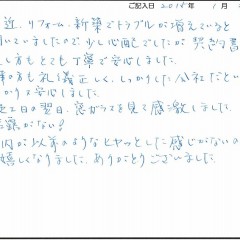 ご記入日 2015年 1月
近、リフォーム・新築でトラブルが増えていると
いていましたので少し心配でしたが契約書
し方もとても丁寧で安心しました。
事の方も礼義正しく、しっかりした会社だとい
かりと安心しました。
完工日の翌日、窓ガラスを見て感激しました。
結露がない!
内が以前のようなヒヤッとした感じがないの
嬉しくなりました。ありがとうございました。